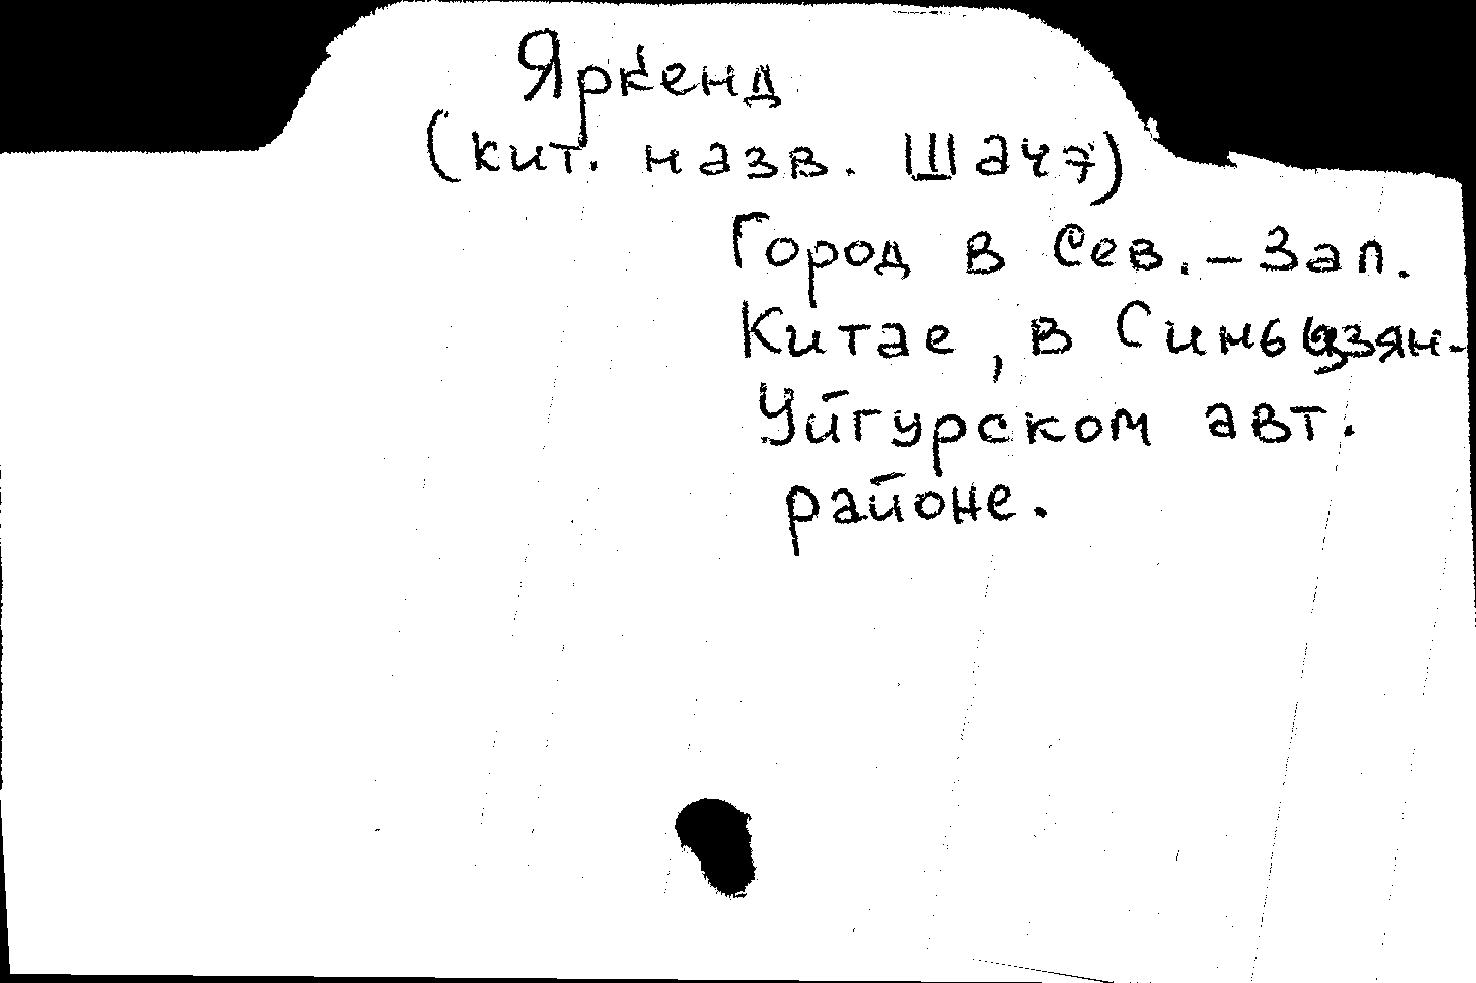 Яркенд
(кит. назв. Шачэ)
Город в Сев.-Зап.
Китае, в Синьцзян-
Уйгурском авт.
районе.